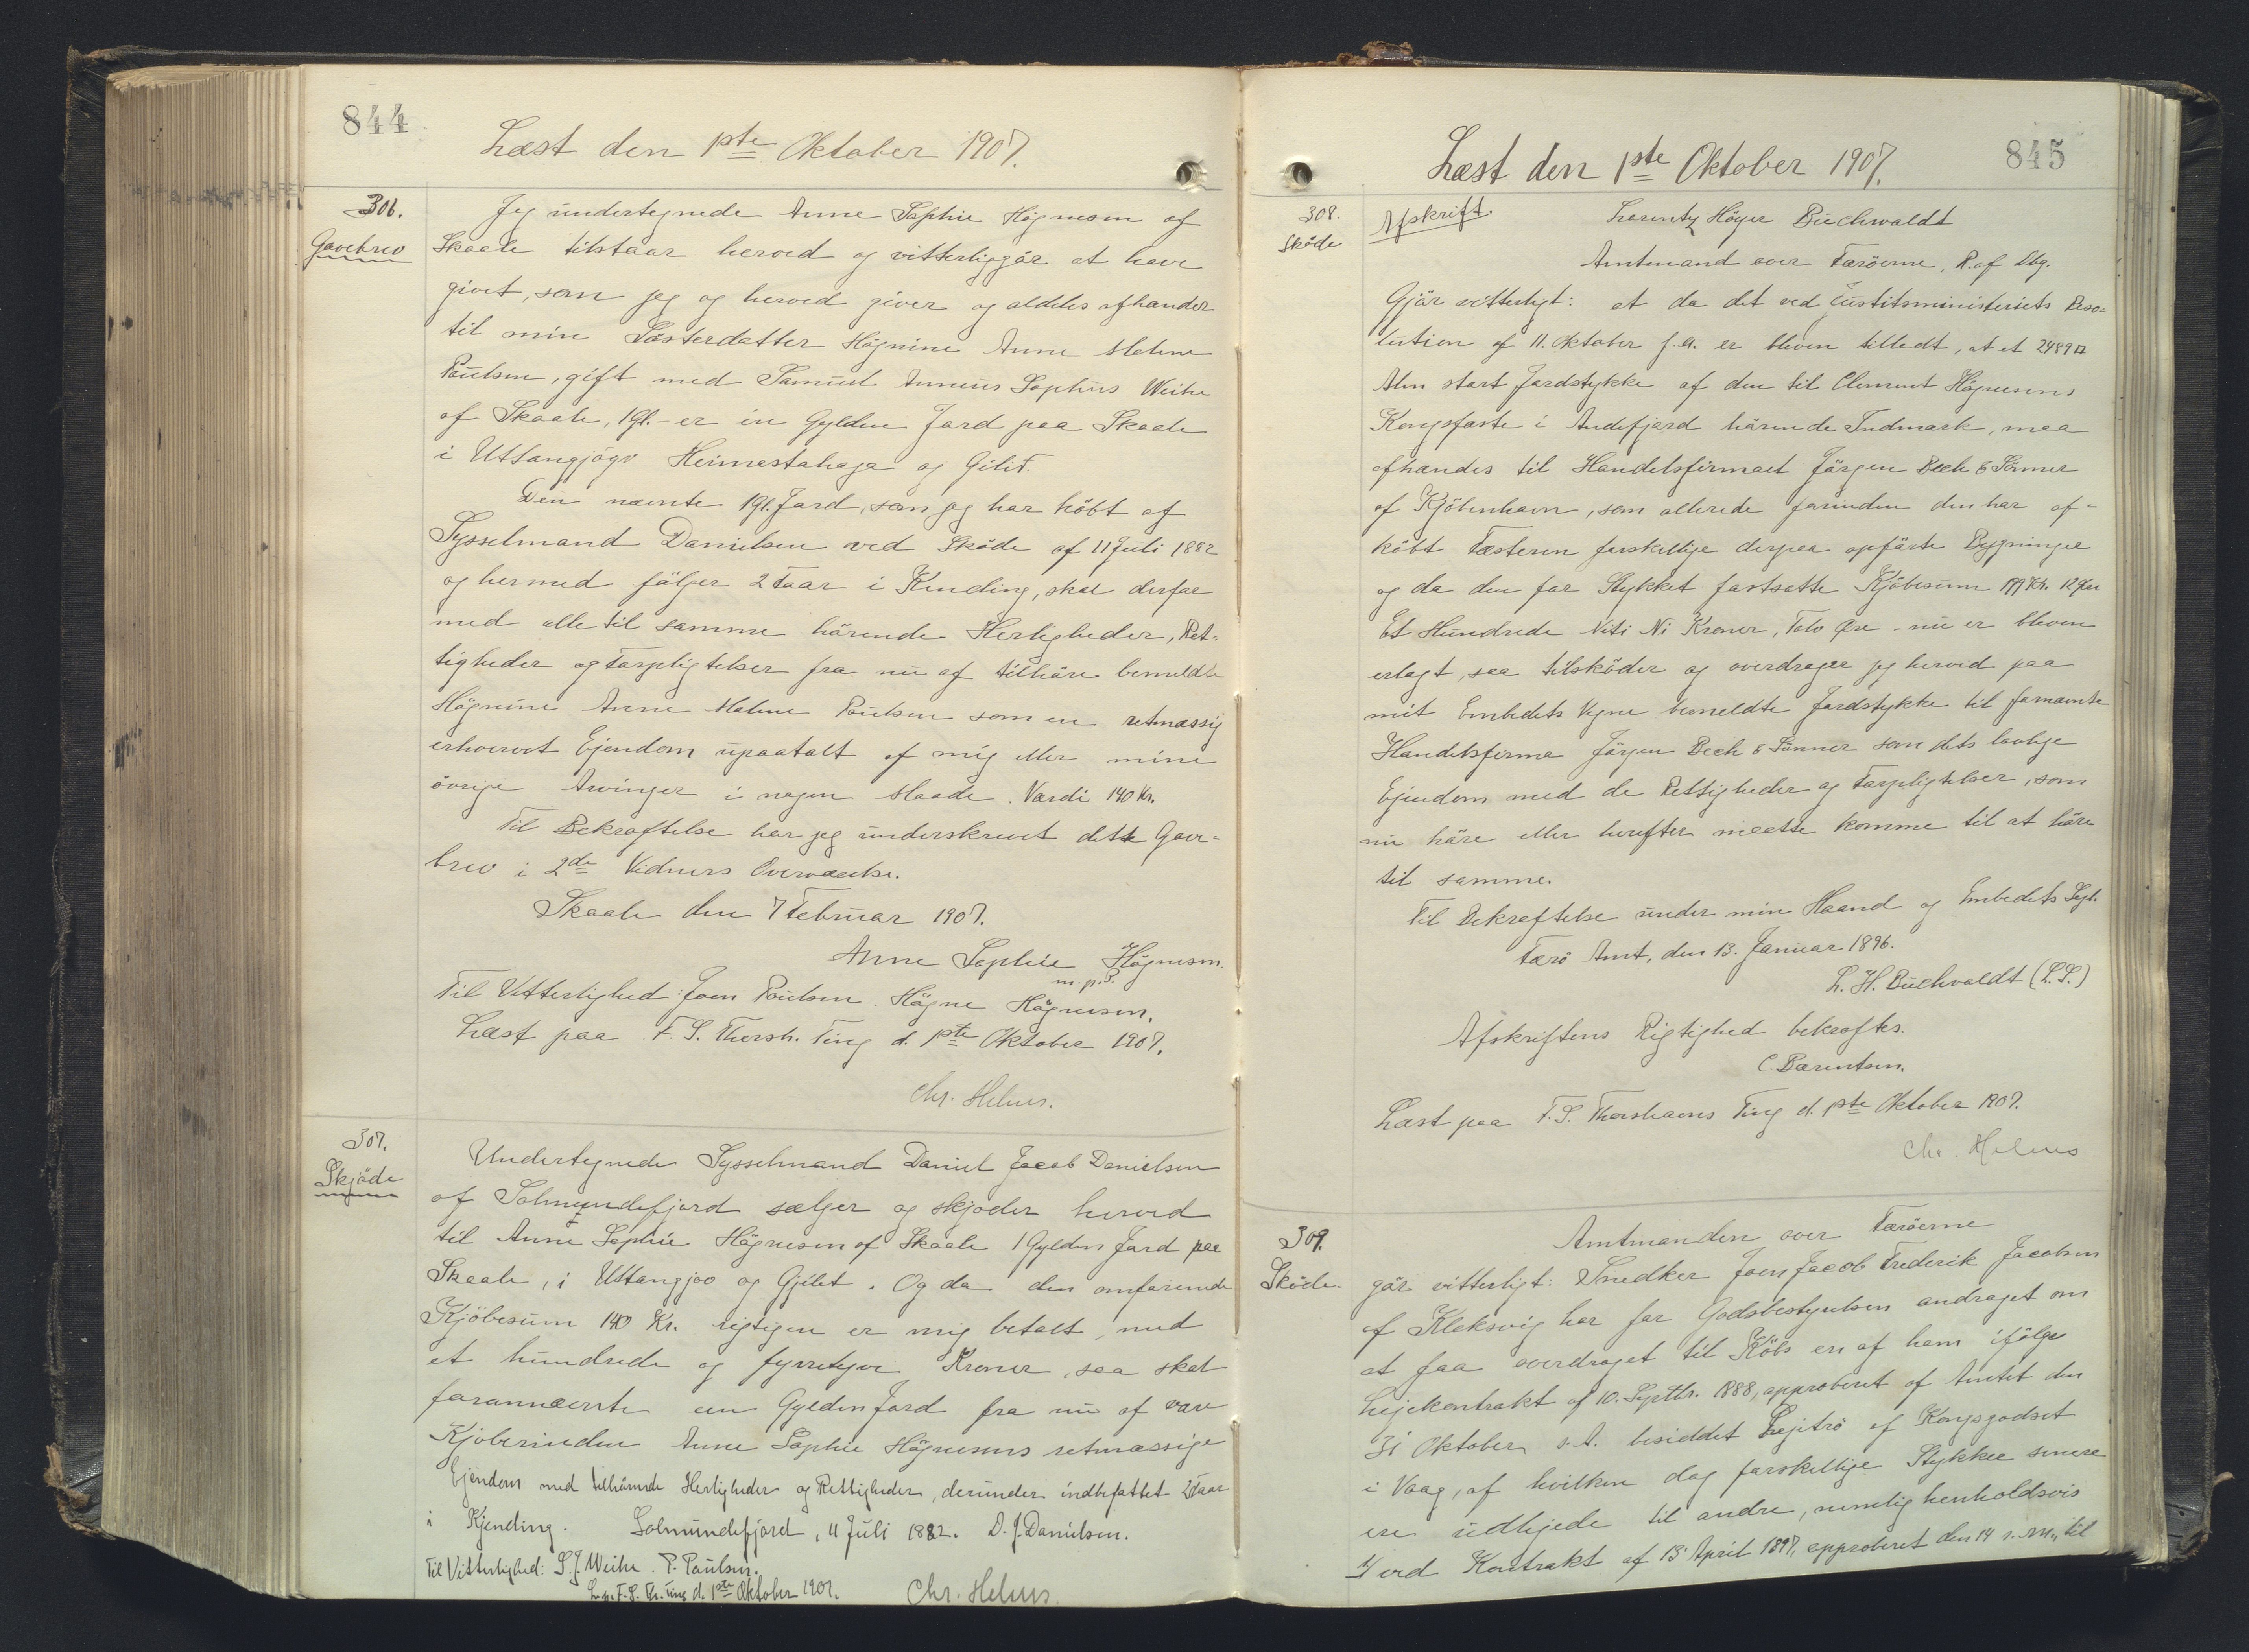 844
Læst den 1ste Oktober 1907.
306.
Gavebrev
Jeg undertegnede Anne Sophie Högnesen af
Skaale tilstaar herved og vitterliggör at have
givet, som jeg og herved giver og aldeles afhænder
til min Sösterdatter Högnine Anne Malene
Poulsen, gift med Samuel Anneus Sophus Weihe
af Skaale, 1 gl. - er en Gylden Jord paa Skaale
i Uttangjógv Heimastahaga og Gilit.
Den nævnte 1 gl. Jord, som jeg har köbt af
Sysselmand Danielsen ved Sköde af 11 Juli 1882
og hermed fölger 2 Faar i Kending, skal derfor
med alle til samme hörende Herligheder, Ret-
tigheder og Forpligtelser fra nu af tilhöre bemeldte
Högnine Anne Malene Poulsen som en retmæssig
erhvervet Ejendom upaatalt af mig eller mine
övrige Arvinger i nogen Maade. Værdi 140 Kr.
Til Bekræftelse har jeg underskrevet dette Gave-
brev i 2de Vidners Overværelse.
Skaale den 7 Februar 1907.
Anne Sophie Högnesen
m. p. P.
Til Vitterlighed: Joen Poulsen. Högne Högnesen.
Læst paa F. S. Thorsh. Ting d. 1ste Oktober 1907.
Chr. Helms.
307.
Skjöde
Undertegnede Sysselmand Daniel Jacob Danielsen
af Solmundefjord sælger og skjøder herved
til Anne Sophie Högnesen af Skaale 1 Gylden Jord paa
Skaale, i Uttangjoo og Gjilet. Og da den omforenede
Kjöbesum 140 Kr. rigtigen er mig betalt, med
et hundrede og fyrretyve Kroner, saa skal
forannævnte een Gylden Jord fra nu af være
Kjöberinden Anne Sophie Högnesens retmæssige
Ejendom med tilhörende Herligheder og Rettigheder, derunder indbefattet 2 Faar
i Kjending. Solmundefjord, 11 Juli 1882. D. J. Danielsen.
Til Vitterlighed: S. J. Weihe. P. Paulsen.
L. p. F. S. Th. Ting d. 1ste Oktober 1907. Chr. Helms.
845
Læst den 1ste Oktober 1907.
308.
Sköde
Afskrift.
Lorentz Höyer Buchwaldt
Amtmand over Færöerne, R. af Dbg.
Gjör vitterligt: at da det ved Justitsministeriets Reso-
lution af 11. Oktober f. A. er bleven tilladt, at et 2489 □
Alen stort Jordstykke af den til Clement Högnesens
Kongsfæste i Andefjord hörende Indmark, maa
afhændes til Handelsfirmaet Jörgen Bech & Sönner
af Kjöbenhavn, som allerede forinden den har af-
köbt Fæsteren forskellige derpaa opförte Bygninger
og da den for Stykket fastsatte Kjöbesum 199 Kr. 12 Øre
Et Hundrede Niti Ni Kroner, Tolv Øre - nu er bleven
erlagt, saa tilsköder og overdrager jeg herved paa
mit Embedets Vegne bemeldte Jordstykke til fornævnte
Handelsfirma Jörgen Bech & Sönner som dets lovlige
Ejendom med de Rettigheder og Forpligtelser, som
nu höre eller herefter maatte komme til at höre
til samme.
Til Bekræftelse under min Haand og Embedets Segl.
Færö Amt, den 13. Januar 1896.
L. H. Buchwaldt (L. S.)
Afskriftens Rigtighed bekræftes.
C. Bærentsen.
Læst paa F. S. Thorshavns Ting d. 1ste Oktober 1907.
Chr. Helms
309.
Sköde.
Amtmanden over Færöerne
gör vitterligt: Snedker Joen Jacob Frederik Jacobsen
af Klaksvig har for Godsbestyrelsen andraget om
at faa overdraget til Köbs en af ham ifölge
Lejekontrakt af 10. Septbr. 1888, approberet af Amtet den
31 Oktober s. A. besiddet Lejetrö af Kongsgodset
i Vaag, af hvilken dog forskellige Stykker senere
ere udlejede til andre, nemlig henholdsvis
1/ ved Kontrakt af 13 April 1897, approberet den 14 s. M., til